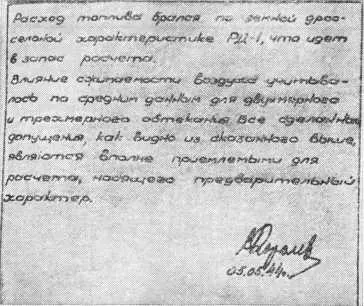 Расход топлива брался по земной дрос-
сельной характеристике РД-1, что идет
в запас расчета.
Влияние сжимаемости воздуха учитыва-
лось по средним данным для двухмерного
и трехмерного обтекания. Все сделанные
допущения, как видно из сказанного выше,
являются вполне приемлемыми для
расчета, носящего предварительный
характер.
05.05.44г.